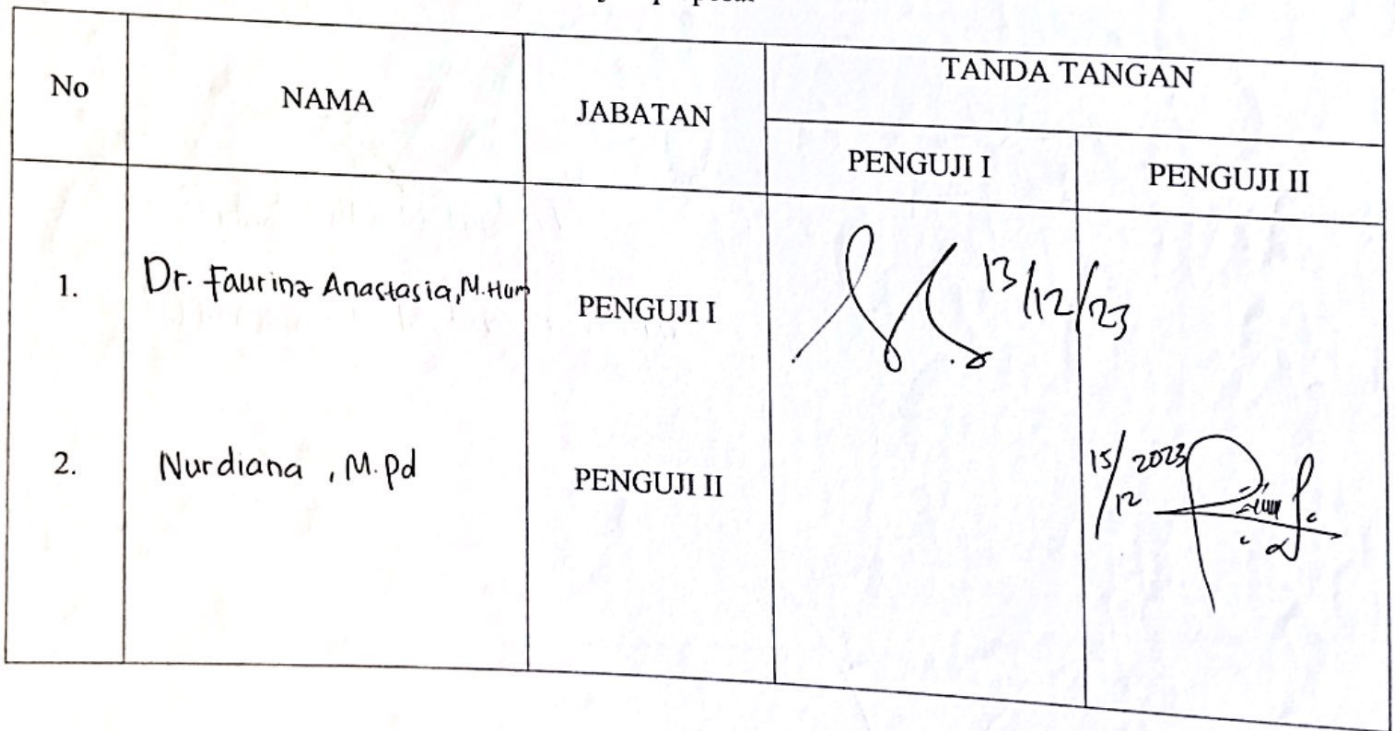 No
NAMA
JABATAN
TANDA TANGAN
PENGUJI I
PENGUJI II
1.
Dr. Faurina Anastasia, M.Hum
PENGUJI I
13/12/23
2.
Nurdiana , M.Pd
PENGUJI II
15/12 2023